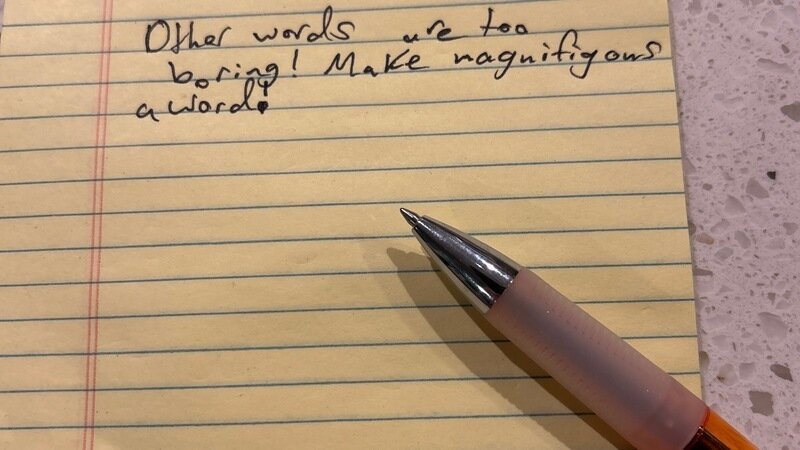 Other words are too
boring! Make magnifigous
a word!